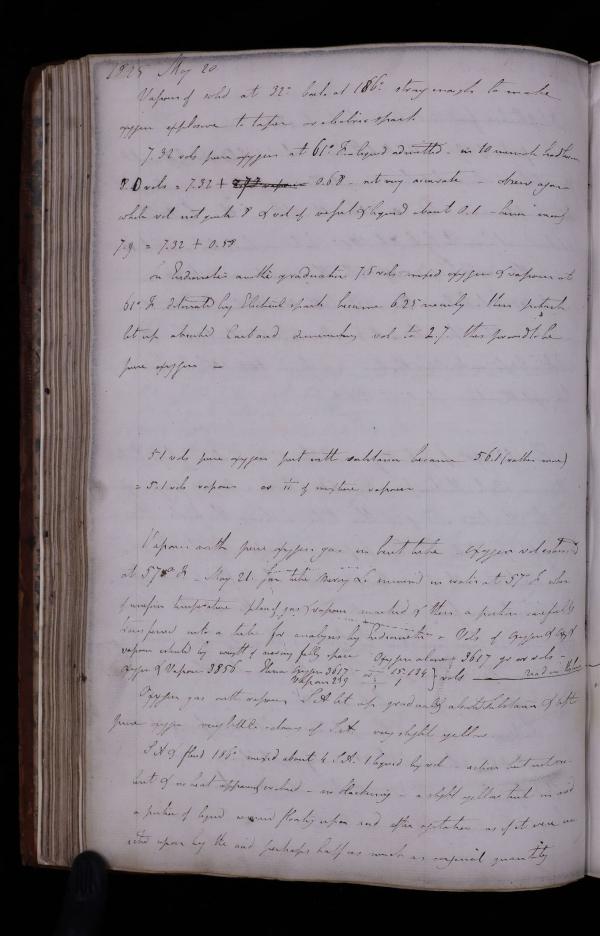 1825 May 20
Vapour of solid at 32° boils at 186° strong enough to make
oxygen explosive to taper or electric spark
7.32 vols pure oxygen at 61° F. liquid admitted - in 10 minutes had become
8.0 vols = 7.32 + 0.68 - not very accurate - observe again
whole vol not quite 8 & vol of vessel & liquid about 0.1 - hence nearly
7.9 = 7.32 + 0.58
In Eudiometer another graduation 7.5 vols mixed oxygen & vapour at
61° F. detonated by Electric spark became 6.25 nearly then potash
let up absorbed Carb acid diminishing vol to 2.7. this proved to be
pure oxygen -
51 vols pure oxygen put with substance became 56.1 (rather more)
= 5.1 vols vapour or 1/11 of mixture vapour
Vapour with pure oxygen gas in bent tube oxygen vol
at 57° F. May 21. tube being immersed in water at 57° F. when
of vapour temperature. place of gas & vapour marked & then a portion carefully
transferred into a tube for analysis by Eudiometer - Vols of Oxygen & Oxy &
vapour by weight of mercury fully space Oxygen alone 3617 grs or vols -
Oxygen & Vapour 3856 - Hence Oxygen 3617 or 15.134 } vols
Vapour 239 1
Oxygen gas with vapour S.A let up gradually absorbs substance & left
pure oxygen very little colour of S.A very slight yellow
S A & fluid 186° mixed about 4 S.A. 1 liquid by vol - action but not
but & no heat apparently evolved - no blackening - a slight yellow tint in acid
a portion of liquid floating upon acid after agitation as if it were
acted upon by the acid perhaps half as much as original quantity